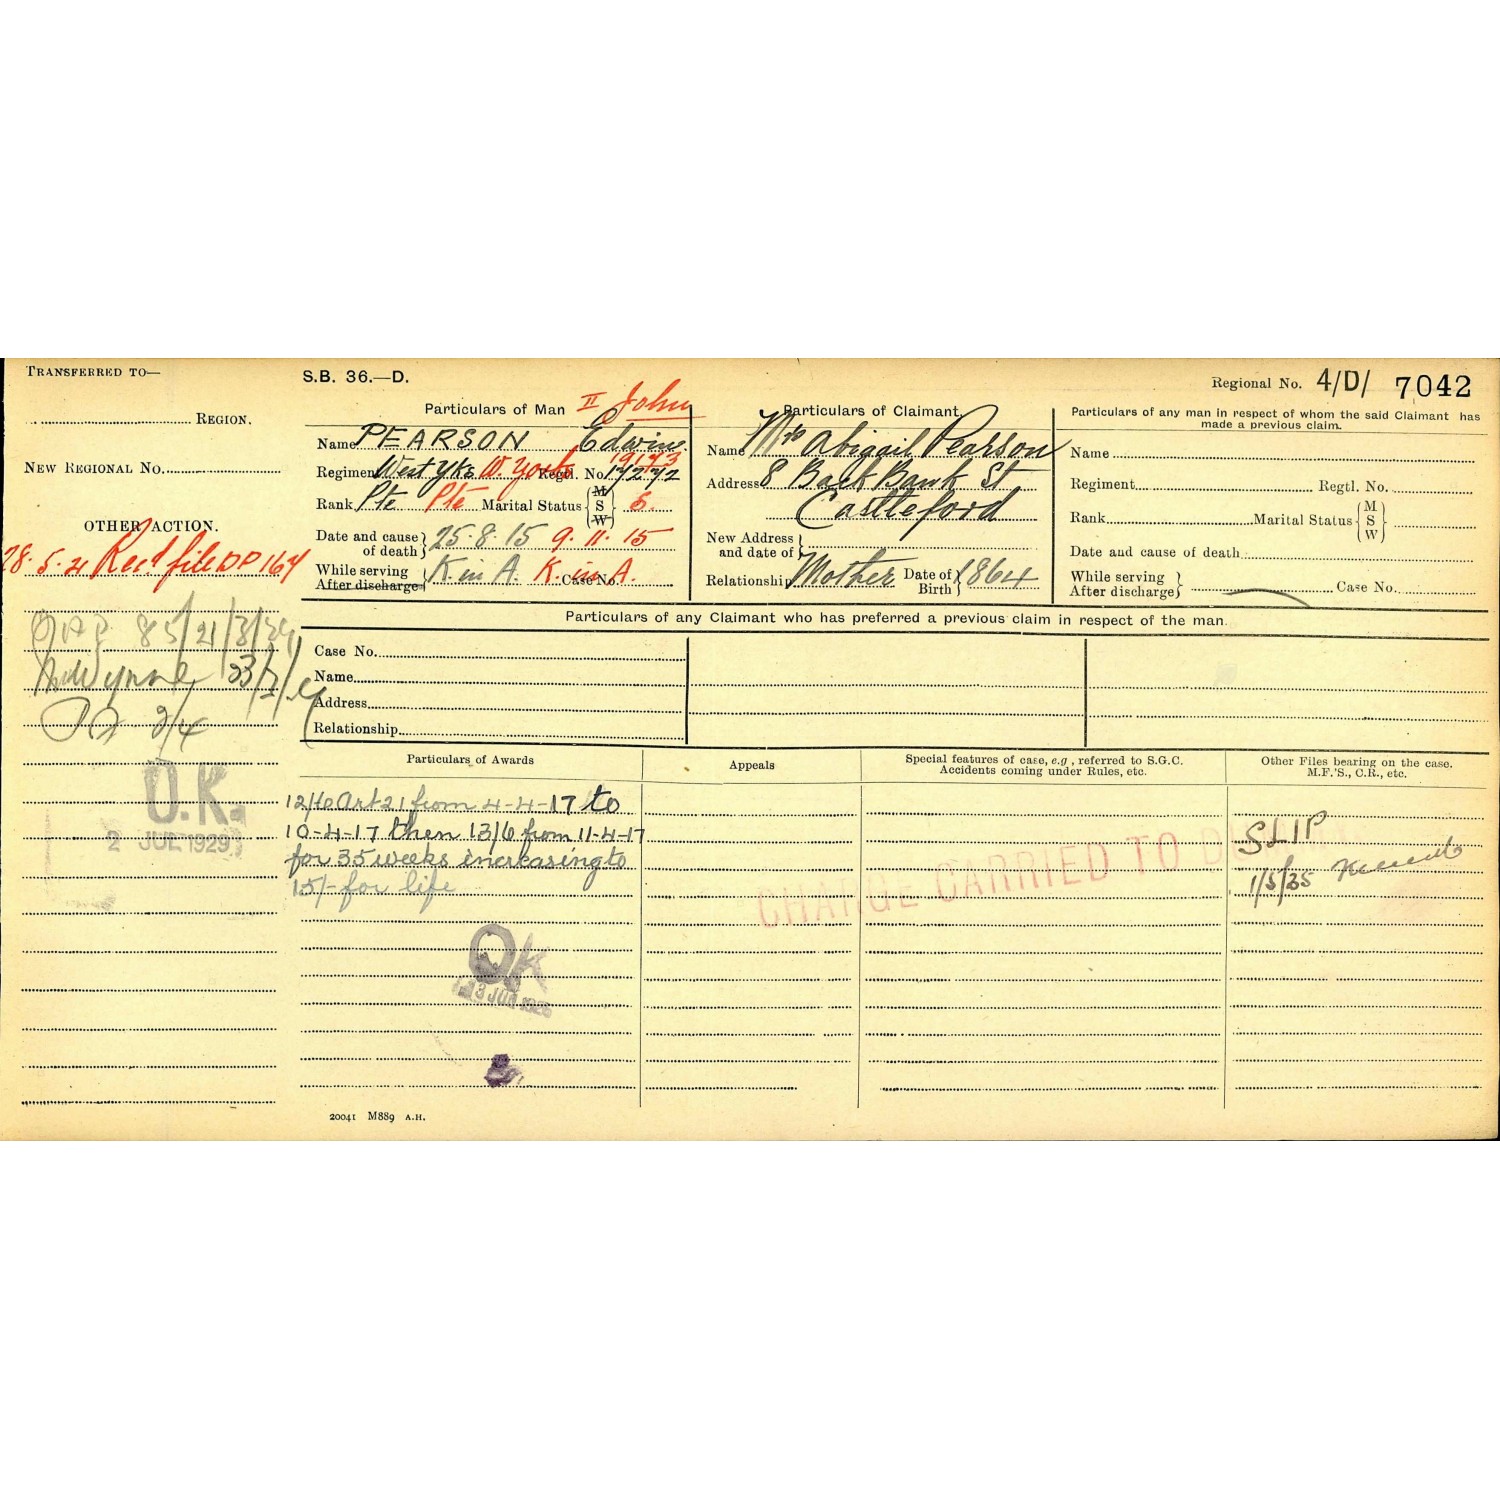 TRANSFERRED TO—
REGION.
NEW REGIONAL No.
OTHER ACTION.
28.5.21 Recd file DP 164
85/21/3/
Wynne 23/
2/4
O.K.
2 JUL 1929
S.B. 36.—D.
Particulars of Man II John
Name PEARSON Edwin
Regiment West Yks W. Yorks Regtl. No. 19173
Rank Pte Pte Marital Status { M S W } S.
Date and cause of death } 25.8.15 9.11.15
While serving After discharge } K in A. K. in A. Case No.
Particulars of Claimant.
Name Mrs Abigail Pearson
Address 8 Back Bank St
Castleford
New Address and date of }
Relationship Mother Date of Birth } 1864
Regional No. 4/D/ 7042
Particulars of any man in respect of whom the said Claimant has
made a previous claim.
Name
Regiment Regtl. No.
Rank Marital Status { M S W }
Date and cause of death
While serving After discharge } Case No.
Particulars of any Claimant who has preferred a previous claim in respect of the man.
Case No.
Name
Address
Relationship
Particulars of Awards
12/6 Art 21 from 4-4-17 to
10-4-17 then 13/6 from 11-4-17
for 35 weeks increasing to
15/- for life
OK
Appeals
Special features of case, e.g., referred to S.G.C.
Accidents coming under Rules, etc.
CHARGE CARRIED TO
Other Files bearing on the case.
M.F.'S., C.R., etc.
SLIP
1/5/35
20041 M889 A.H.